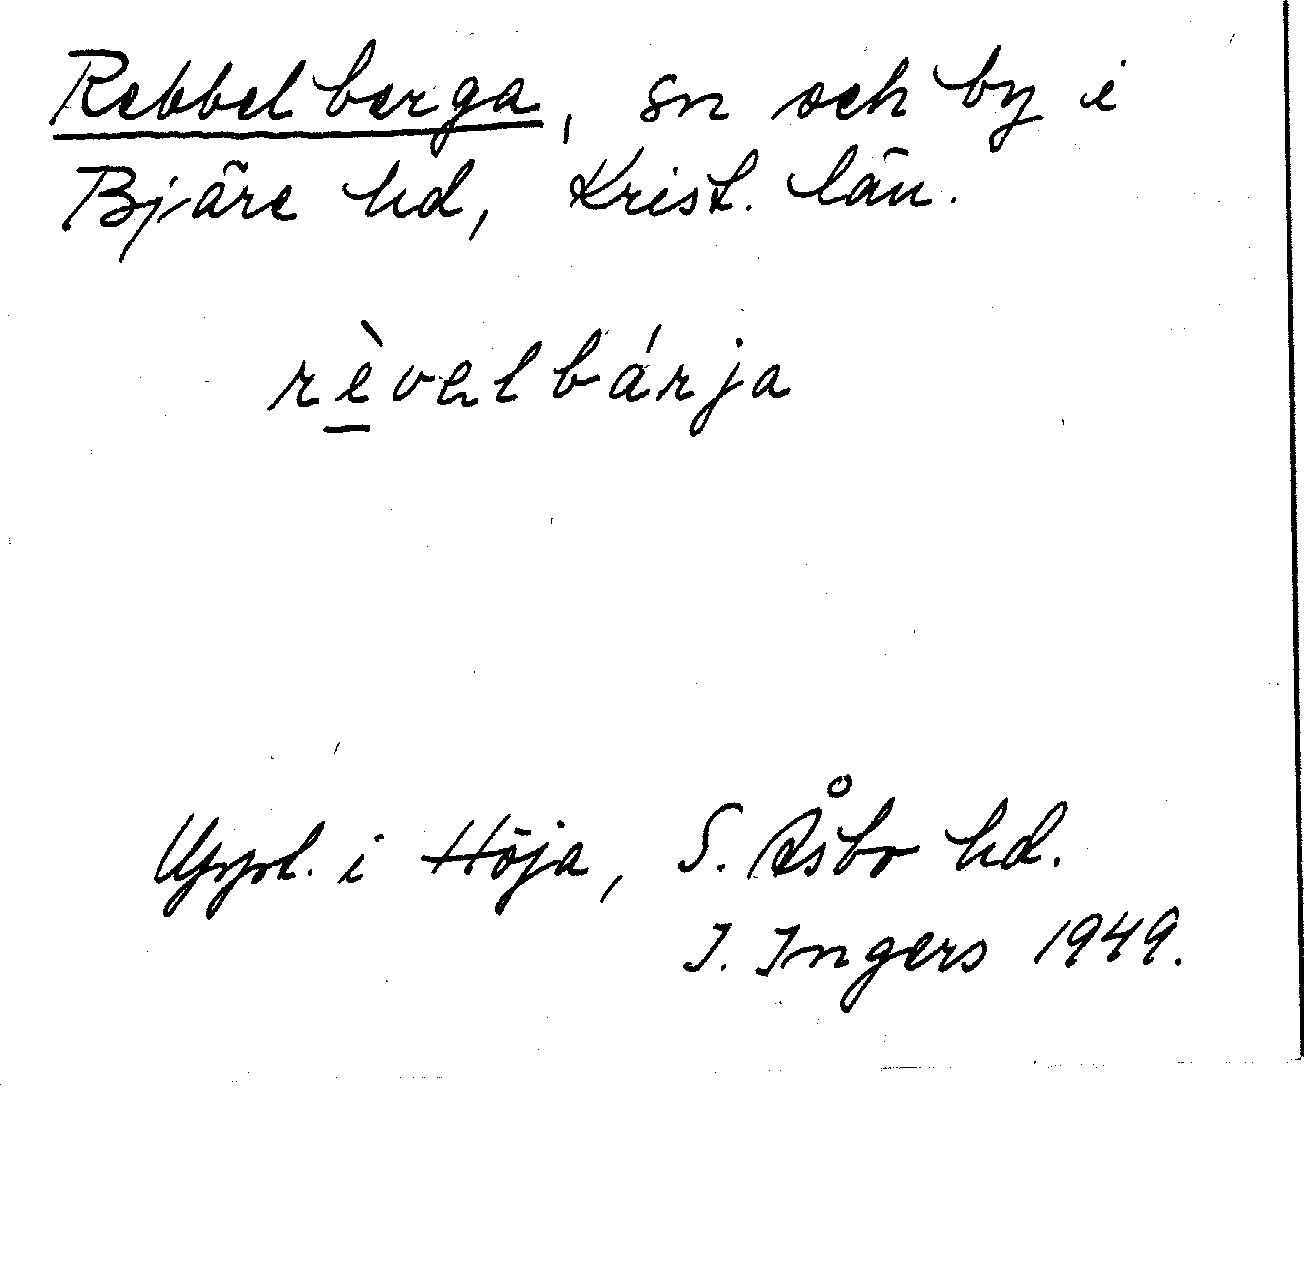 Rebbelberga, sn och by i
Bjäre hd, Krist. län.
rèvəlbárja
Uppt. i Höja, S. Åsbo hd.
I. Ingers 1949.